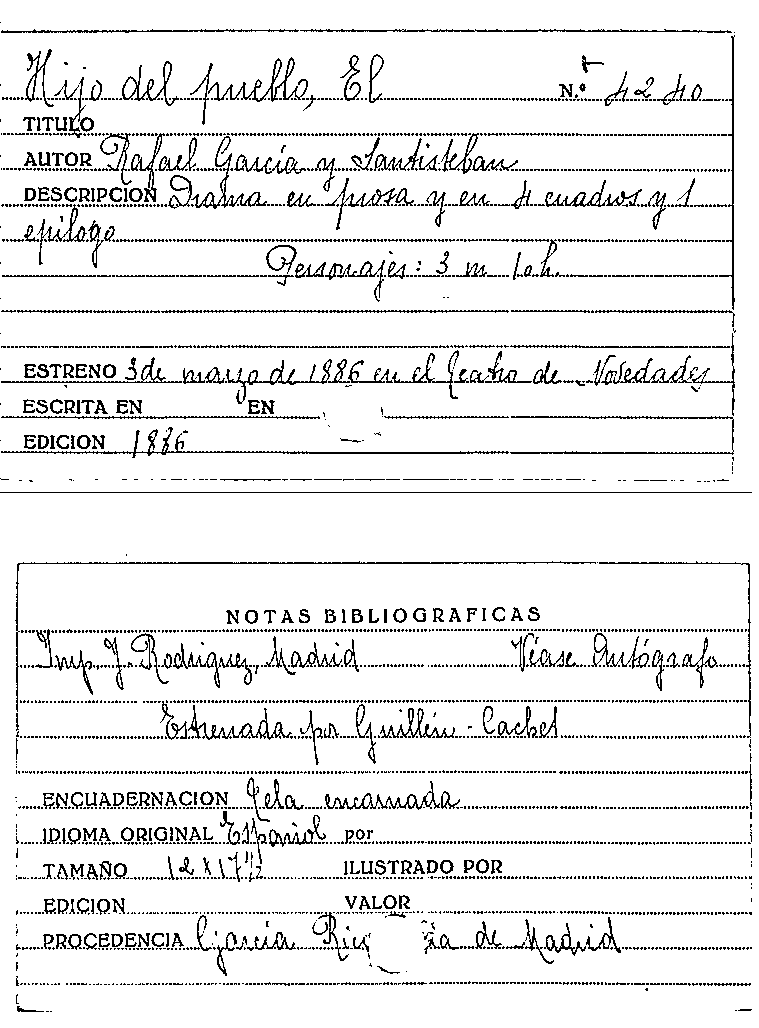 Hijo del pueblo, El N.º 4240
TITULO
AUTOR Rafael García y Santisteban
DESCRIPCION Drama en prosa y en 4 cuadros y 1
epílogo
Personajes: 3 m 10 h.
ESTRENO 3 de marzo de 1886 en el Teatro de Novedades
ESCRITA EN EN
EDICION 1886
NOTAS BIBLIOGRAFICAS
Imp. J. Rodriguez, Madrid Véase Autógrafo
Estrenada por Guillén - Cachet
ENCUADERNACION Tela encarnada
IDIOMA ORIGINAL Español por
TAMAÑO 12 X 17 1/2 ILUSTRADO POR
EDICION VALOR
PROCEDENCIA García de Madrid